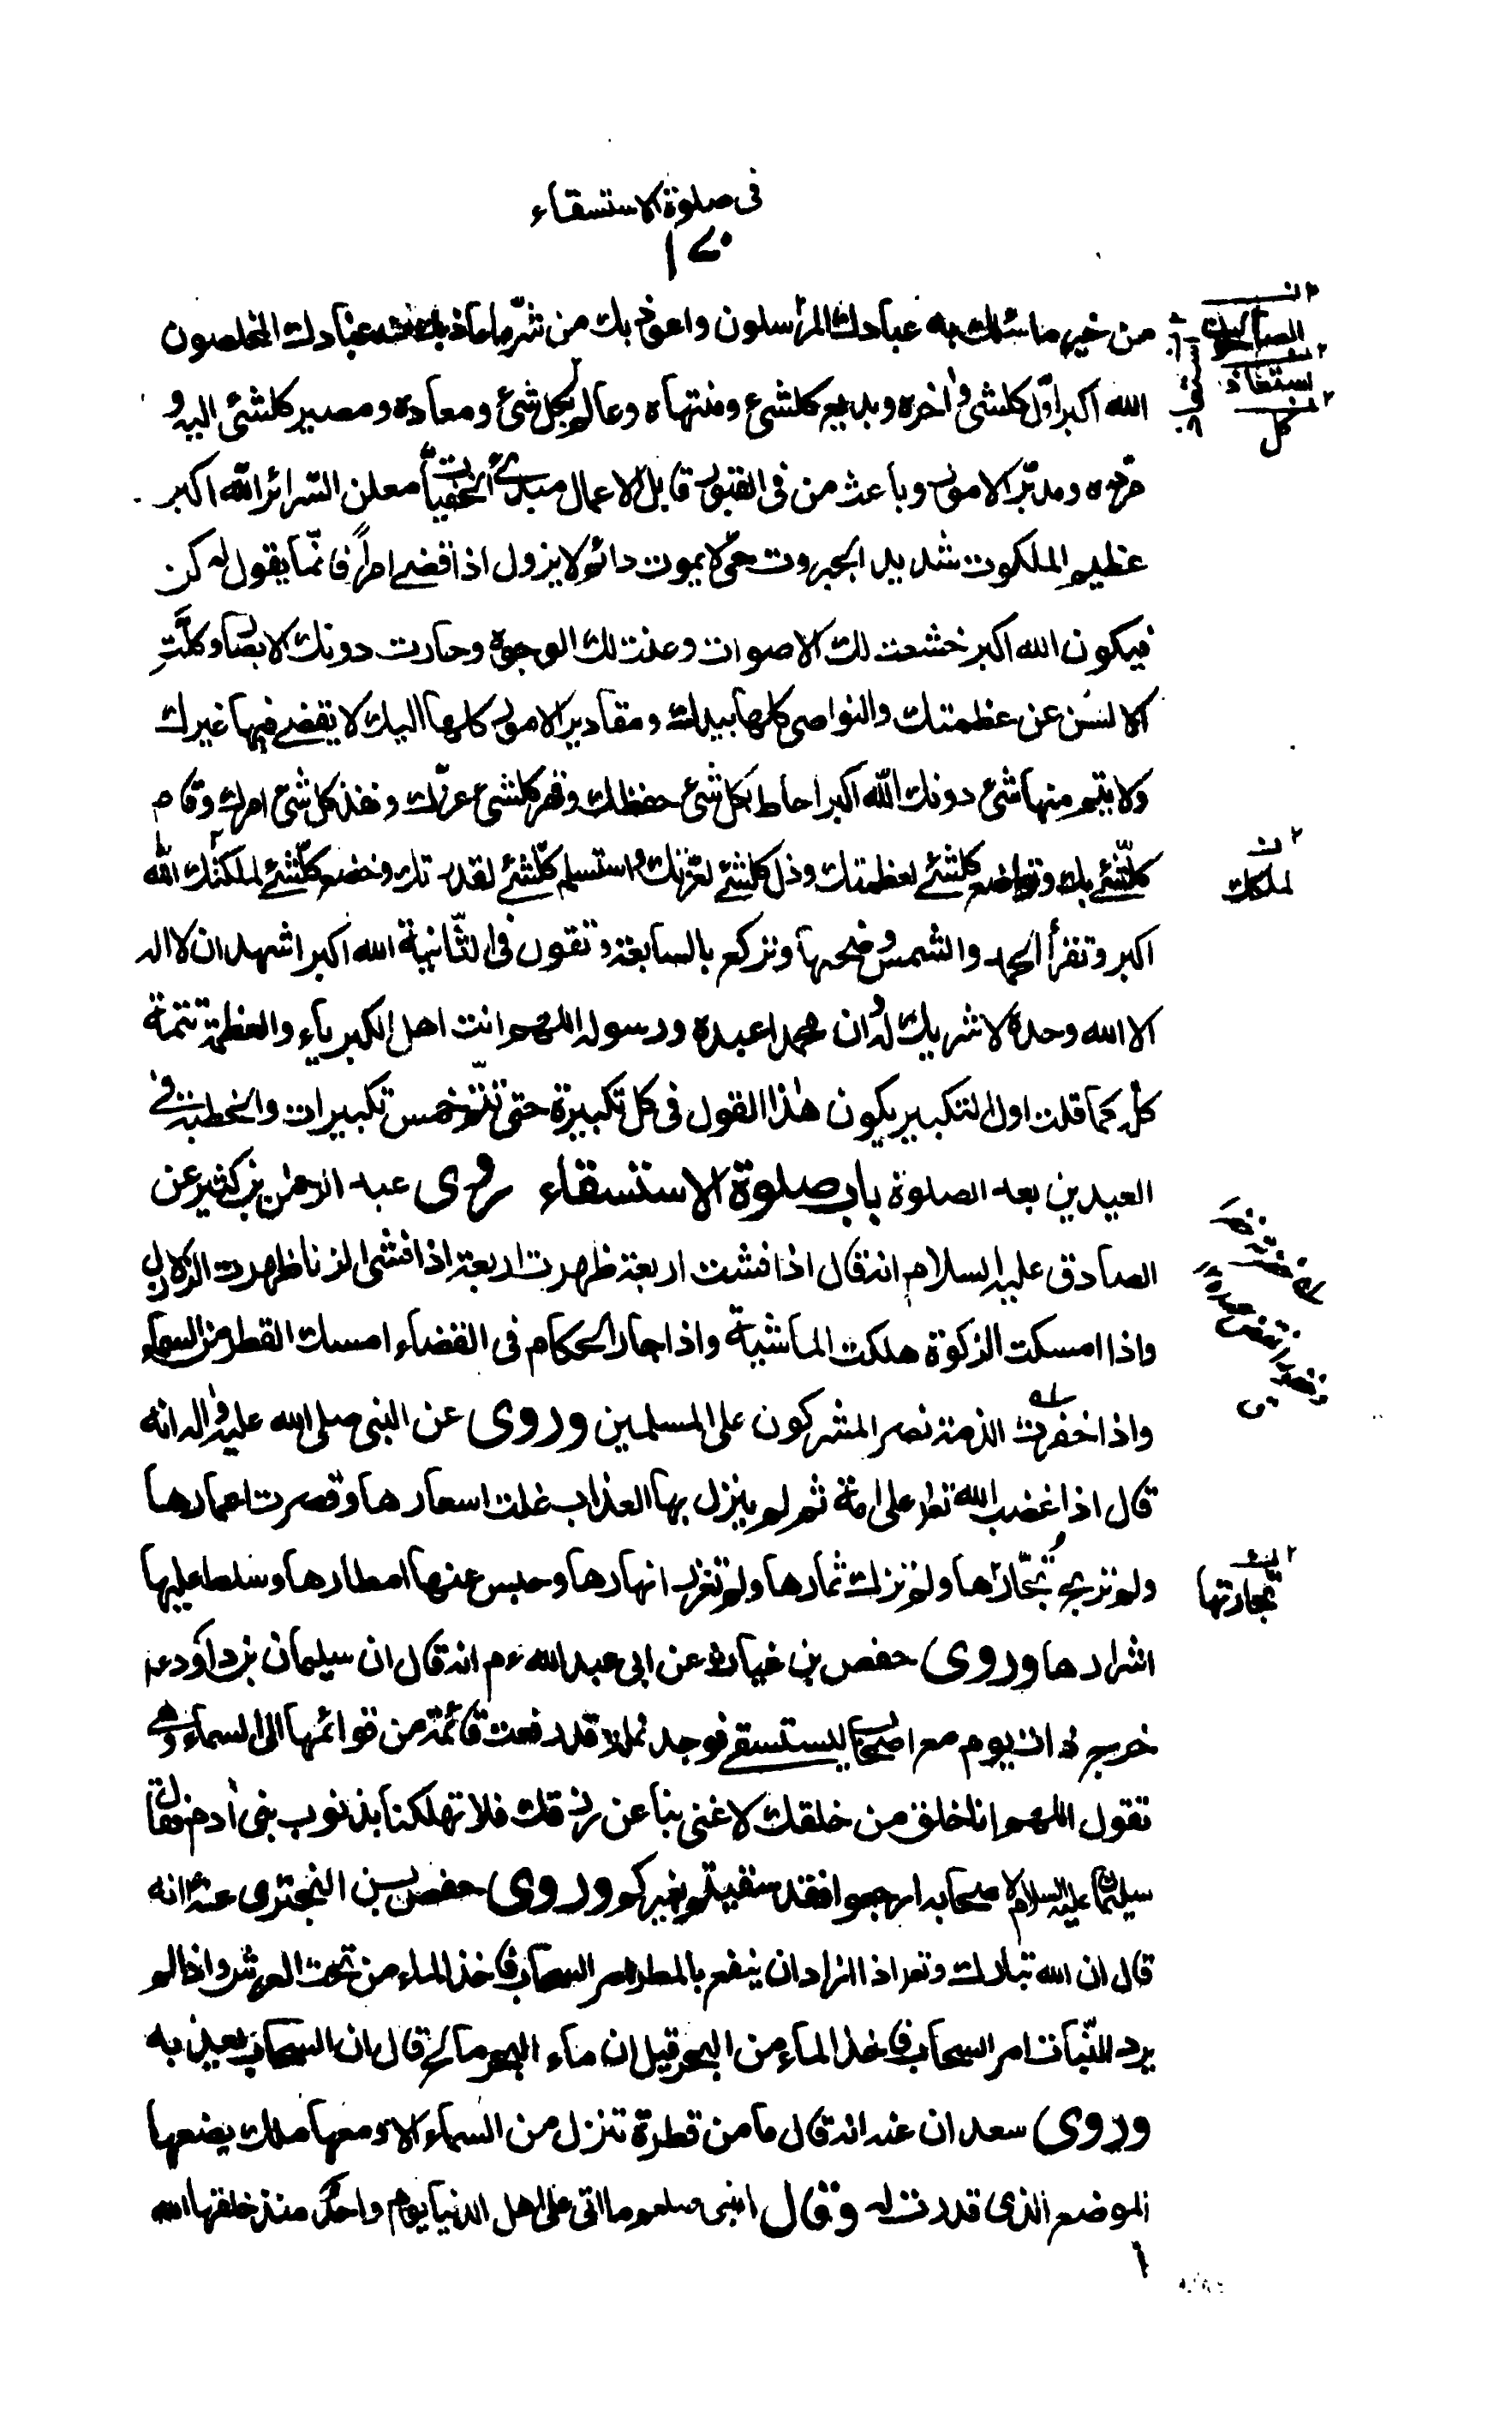 فى صلوة الاستسقاء
١٧٠
من خير ما سئلك به عبادك المرسلون واعوذ بك من شر ما عاذ بك منه عبادك المخلصون
الله اكبر اوّل كلشئ واخره وبديع كلشئ ومنتهاه وعالم بكل شئ ومعاده ومصير كلشئ اليه و
مردّه ومدبّر الامور وباعث من فى القبور قابل الاعمال مبدئ الخفيات معلن السّرائر الله اكبر
عظيم الملكوت شديد الجبروت حىّ لا يموت دائم لا يزول اذا قضى امراً فانّما يقول له كن
فيكون الله اكبر خشعت لك الاصوات وعنت لك الوجوه وحارت دونك الابصار وكلّتِ
الالسُن عن عظمتك والنواصى كلها بيدك ومقادير الامور كلها اليك لا يقضى فيها غيرك
ولا يتم منها شئ دونك الله اكبر احاط بكل شئ حفظك وقهر كلشئ عزّك ونفذ كل شئ امرك وقام
كلّشئ بك وتواضع كلشئ لعظمتك وذل كلشئ لعزتك واستسلم كلّشئ لقدرتك وخضع كلّشئ لملكتك الله
اكبر وتقرأ الحمد والشمس وضحيها وتركع بالسابعة وتقول فى الثّانية الله اكبر اشهد ان لا اله
الا الله وحده لا شريك له وان محمدا عبده ورسوله اللهم انت اهل الكبرياء والعظمة تتمّة
كلّه كما قلت اول التكبير يكون هذا القول فى كل تكبيرة حتى تتمّ خمس تكبيرات والخطبة فى
العيدين بعد الصلوة باب صلوة الاستسقاء روى عبد الرحمن بن كثير عن
الصادق عليه السلام انه قال اذا فشت اربعة ظهرت اربعة اذا فشى الزنا ظهرت الزلازل
واذا امسكت الزكوة هلكت الماشية واذا جار الحكام فى القضاء امسك القطر من السماء
واذا خفرت الذمة نصر المشركون على المسلمين وروى عن النبى صلى الله عليه واله انه
قال اذا غضب الله تعا على امة ثم لم ينزل بها العذاب غلت اسعارها وقصرت اعمارها
ولم تربح تُجّارُها ولم تزك ثمارها ولم تغزر انهارها وحبس عنها امطارها وسلط عليها
اشرارها وروى حفص بن غياث عن ابى عبد الله ءم انه قال ان سليمان بن داود ع
خرج ذات يوم مع اصحابه ليستسقى فوجد نملة قد رفعت قائمة من قوائمها الى السماء وهى
تقول اللهم انا خلق من خلقك لا غنى بنا عن رزقك فلا تهلكنا بذنوب بنى ادم فقال
سليمان عليه السلام لاصحابه ارجعوا فقد سقيتم بغيركم وروى حفص بن البخترى عنه انه
قال ان الله تبارك وتعا اذا اراد ان ينفع بالمطر امر السحاب فاخذ الماء من تحت العرش واذا لم
يرد النّبات امر السحاب فاخذ الماء من البحر قيل ان ماء البحر مالح قال ان السحاب يعذبه
وروى سعدان عنه انه قال ما من قطرة تنزل من السماء الا ومعها ملك يضعها
الموضع الذى قدرت له وقال النبى صلعم ما اتى على اهل الدنيا يوم واحد منذ خلقها الله
الصالحون
استعاذ
كل
لملكك
تجارتها